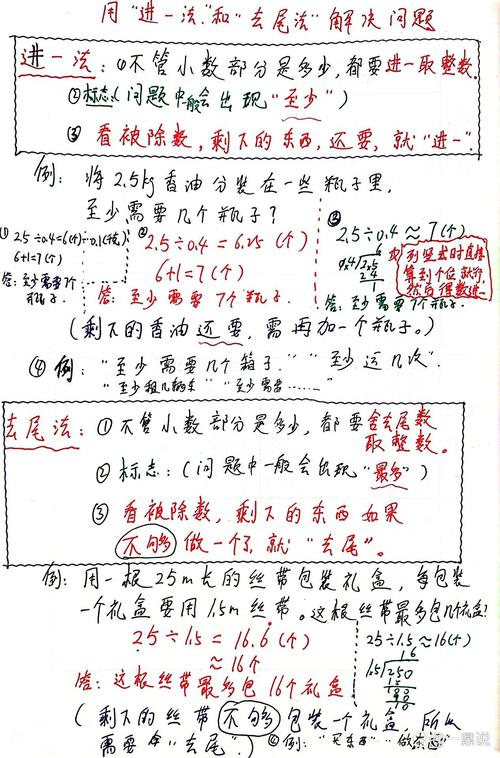 用“进一法”和“去尾法”解决问题
进一法：①不管小数部分是多少，都要进一取整数。
②标志：（问题中一般会出现“至少”）
③看被除数，剩下的东西，还要，就“进一”.
例：将2.5kg香油分装在一些瓶子里，
至少需要几个瓶子？
① 2.5÷0.4=6(个)……0.1(千克)
6+1=7(个)
答：至少需要7个瓶子.
② 2.5÷0.4=6.25（个）
6+1=7（个）
答：至少需要7个瓶子.
③ 2.5÷0.4≈7(个)
6
0.4 2.5
2 4
1
或 列竖式时直接
算到个位就行，
然后得数进一
答：至少需要7个瓶子.
（剩下的香油还要，需再加一个瓶子。）
④例：“至少需要几个箱子.”“至少运几次”.
“至少租几辆车”“至少需要……”
去尾法：①不管小数部分是多少，都要舍去尾数
取整数。
②标志：（问题中一般会出现“最多”）
③看被除数，剩下的东西如果
不够做一个了，就“去尾”。
例：用一根25m长的丝带包装礼盒，每包装
一个礼盒要用1.5m丝带。这根丝带最多包几个礼盒？
25÷1.5=16.6（个）
≈16个
答：这根丝带最多包16个礼盒.
25÷1.5≈16(个)
16
1.5 250
15
90
（剩下的丝带不够包装一个礼盒，所以
需要舍“去尾”.）
④例：“买东西”“做